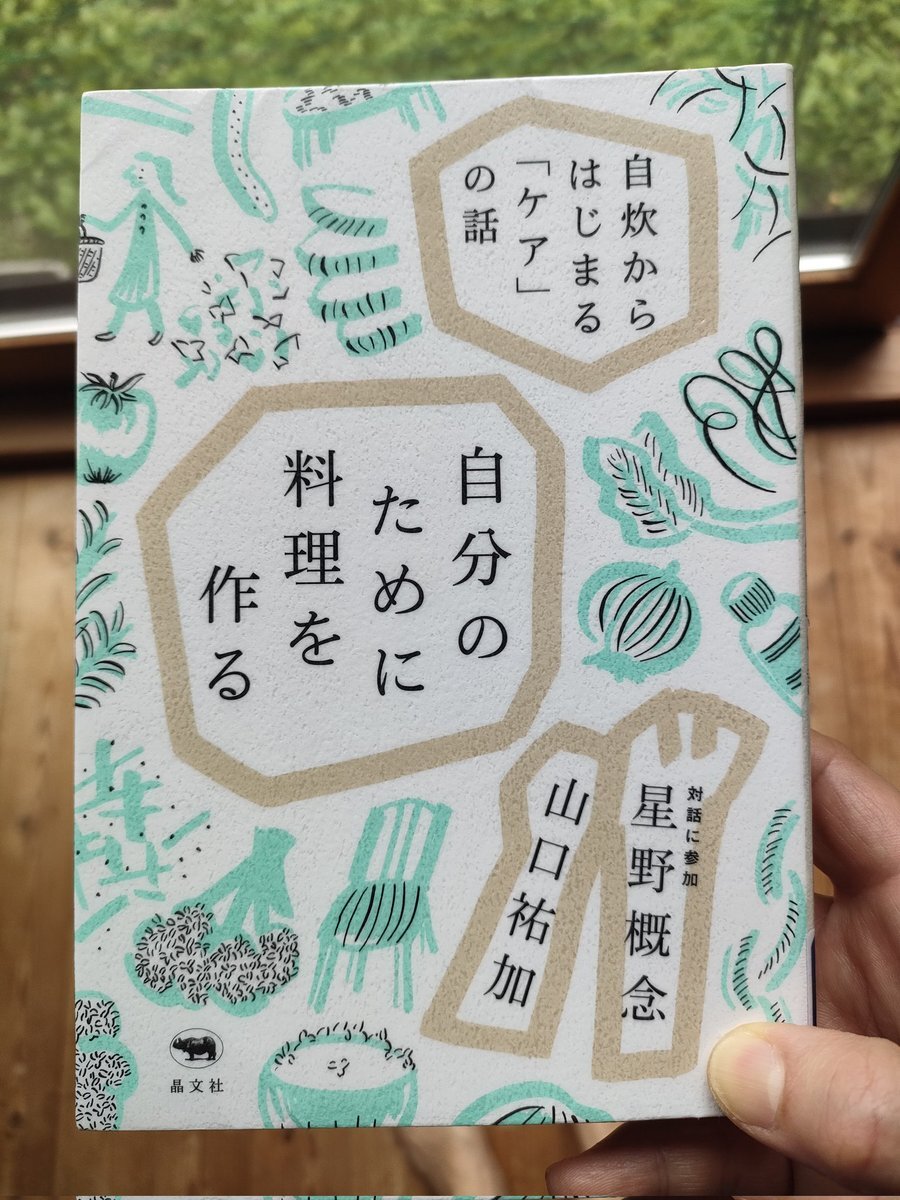 自炊から
はじまる
「ケア」
の話
自分の
ために
料理を
作る
山口祐加
対話に参加
星野概念
晶文社